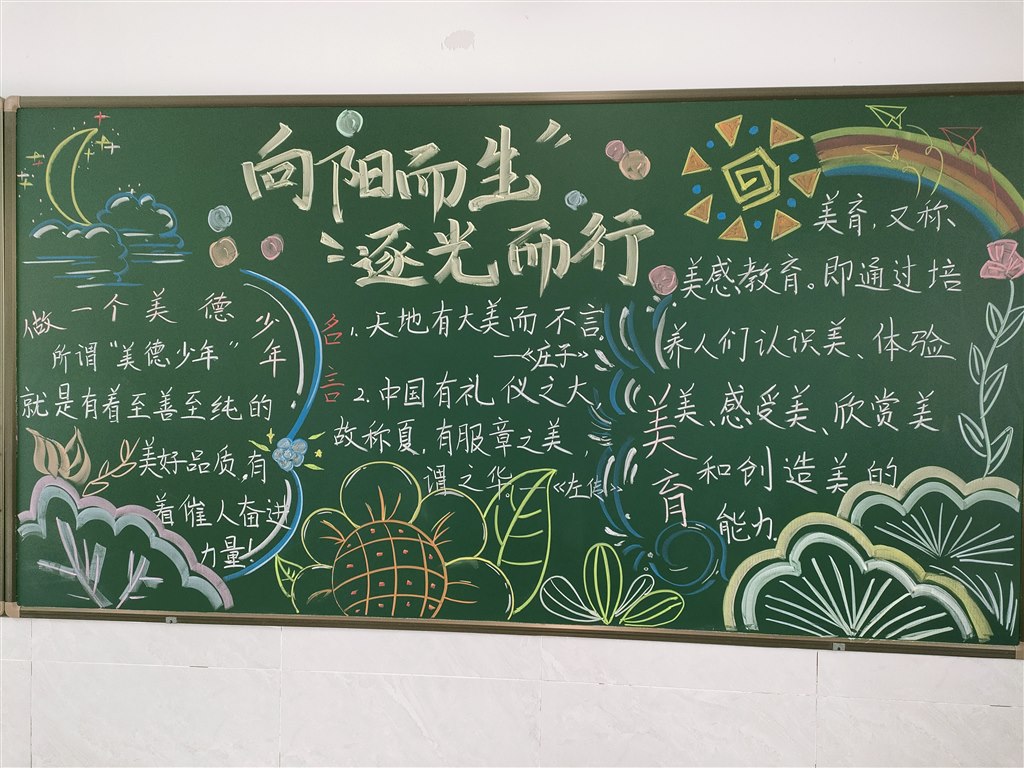 向阳而生
逐光而行
做一个美德少年
所谓“美德少年”
就是有着至善至纯的
美好品质,有
着催人奋进
力量!
名言
1.天地有大美而不言
—《庄子》
2.中国有礼仪之大
故称夏,有服章之美,
谓之华。—《左传》
美育
美育,又称
美感教育。即通过培
养人们认识美、体验
美、感受美、欣赏美
和创造美的
能力.